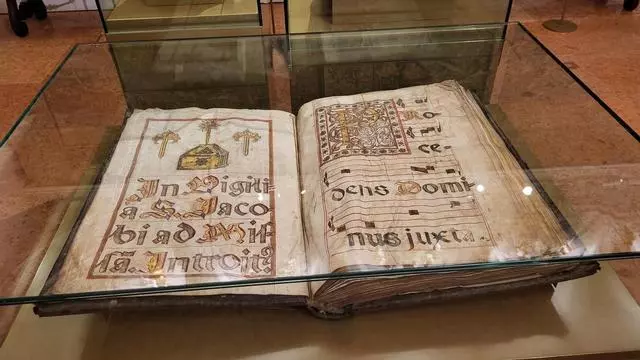 In Vigili
a S. Jaco
bi ad Miſ
sã. Introitꝰ
PRo
ce-
dens Domi-
nus juxta